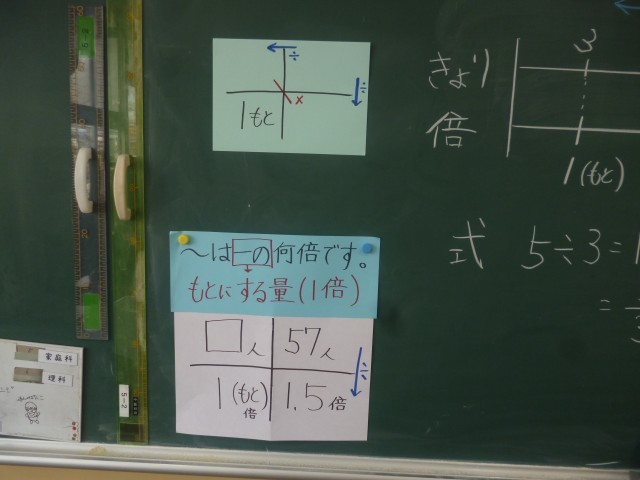 ÷
÷
×
1もと
〜は一の何倍です。
もとにする量(1倍)
□人 57人
÷
1(もと)倍 1.5倍
きょり 3
倍
1(もと)
式 5÷3=1
=
3
家庭科
理科
5-2